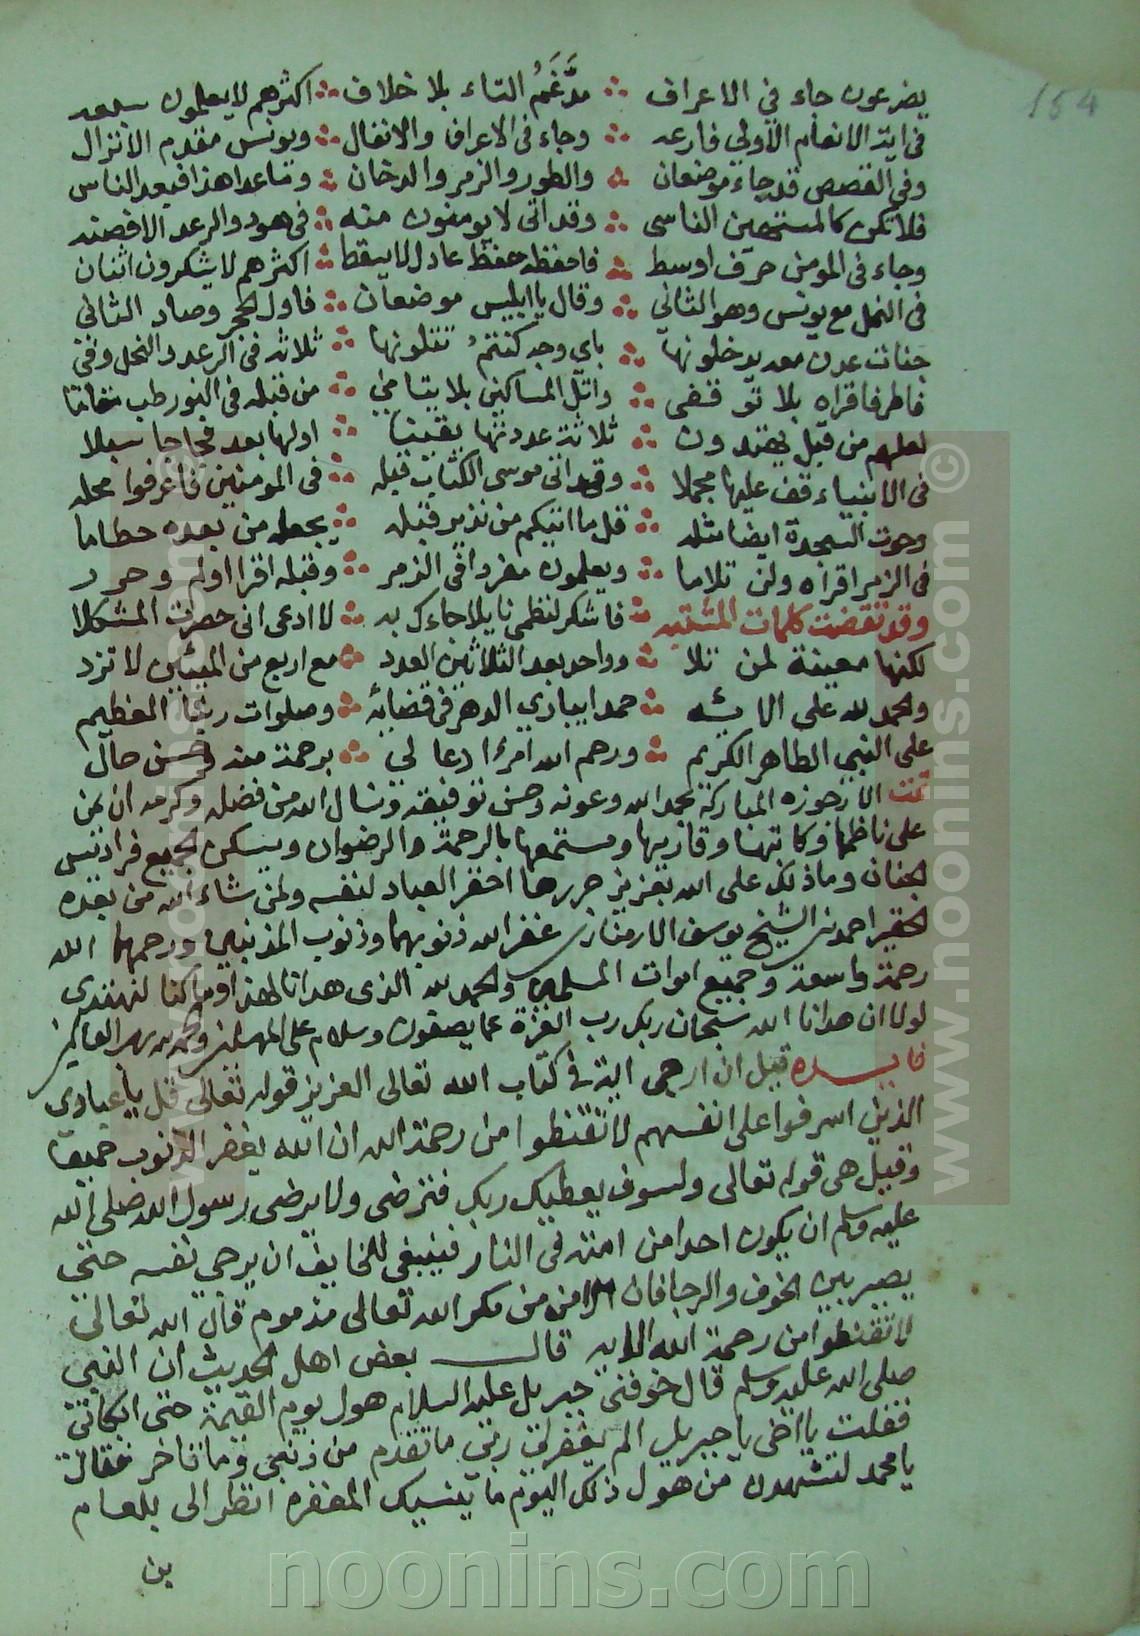 154
يضرعون جاء في الاعراف ∴ مدَّغَمُ التاء بلا خلاف ∴ اكثرهم لا يعلمون
في اية الانعام الاولى فارعه ∴ وجاء في الاعراف والانفال ∴ ويونس مقدم الانزال
وفي القصص قد جاء موضعان ∴ والطور والزمر والدخان ∴ وما عدا هذا فبعد الناس
فلا تكن كالناسي ∴ وقد اتى لا يومنون منه ∴ في هود والرعد
وجاء في المومن حرف اوسط ∴ فاحفظه حفظ عادل لا يقسط ∴ اكثرهم لا يشكرون اثنان
في النمل مع يونس وهو الثاني ∴ وقال يا ابليس موضعان ∴ فاول الحجر وصاد الثاني
جنات عدن معه يدخلونها ∴ باي وجه كنتمُ تتلونها ∴ ثلاثة في الرعد والنحل وفي
فاطر فاقراه بلا توقف ∴ واتل المساكين بلا يتامى ∴ من قبله في النور طب
لعلهم من قبل يهتدون ∴ ثلاثة عددتها يقينا ∴ اولها بعد فجاجا سبلا
في الانبياء قف عليها مجملا ∴ وقد اتى موسى الكتاب قبله ∴ في المومنين فاعرفوا محله
وحوت السجدة ايضا مثله ∴ قل ما اتيكم من نذير قبله ∴ يجعله من بعده حطاما
في الزمر اقراه ولن تلاما ∴ ويعلمون مفردا في الزمر ∴ وقبله اقرا اولم وحرر
وقد تقضت كلمات المشتبه ∴ فاشكر لنظمي نايلا جاءك به ∴ لا ادعي اني حصرت المشكلا
لكنها معينة لمن تلا ∴ وواحد بعد الثلاثين العدد ∴ مع اربع من المئين لا تزد
والحمد لله على الائه ∴ حمدا يباري الدهر في قضائه ∴ وصلوات ربنا العظيم
على النبي الطاهر الكريم ∴ ورحم الله امرءا دعا لي ∴ برحمة منه وحسن حال
تمت الارجوزه المباركة بحمد الله وعونه وحسن توفيقه ونسال الله من فضله وكرمه ان يمن
على ناظمها وكاتبها وقاريها ومستمعها بالرحمة والرضوان ويسكن الجميع فراديس
الجنان وما ذلك على الله بعزيز حررها احقر العباد لنفسه ولمن شاء الله من بعده
الحقير احمد بن الشيخ يوسف الارمنازي غفر الله ذنوبهما وذنوب المذنبين ورحمهما الله
رحمة واسعة وجميع اموات المسلمين والحمد لله الذي هدانا لهذا وما كنا لنهتدي
لولا ان هدانا الله سبحان ربك رب العزة عما يصفون وسلام على المرسلين والحمد لله رب العالمين
فايده قيل ان ارجى اية في كتاب الله تعالى العزيز قوله تعالى قل يا عبادي
الذين اسرفوا على انفسهم لا تقنطوا من رحمة الله ان الله يغفر الذنوب جميعا
وقيل هي قوله تعالى ولسوف يعطيك ربك فترضى ولا يرضى رسول الله صلى الله
عليه وسلم ان يكون احدا من امته في النار فينبغي للخايف ان يرجي نفسه حتى
يصير بين الخوف والرجا فان الامن من مكر الله تعالى مذموم قال الله تعالى
لا تقنطوا من رحمة الله الاية قال بعض اهل الحديث ان النبي
صلى الله عليه وسلم قال خوفني جبريل عليه السلام هول يوم القيمة حتى ابكاني
فقلت يا اخي يا جبريل الم يغفر لي ربي ما تقدم من ذنبي وما تاخر فقال
يا محمد لتشهدن من هول ذلك اليوم ما ينسيك المغفره انظر الى بلعام
بن
© www.noonins.com
© www.noonins.com
noonins.com